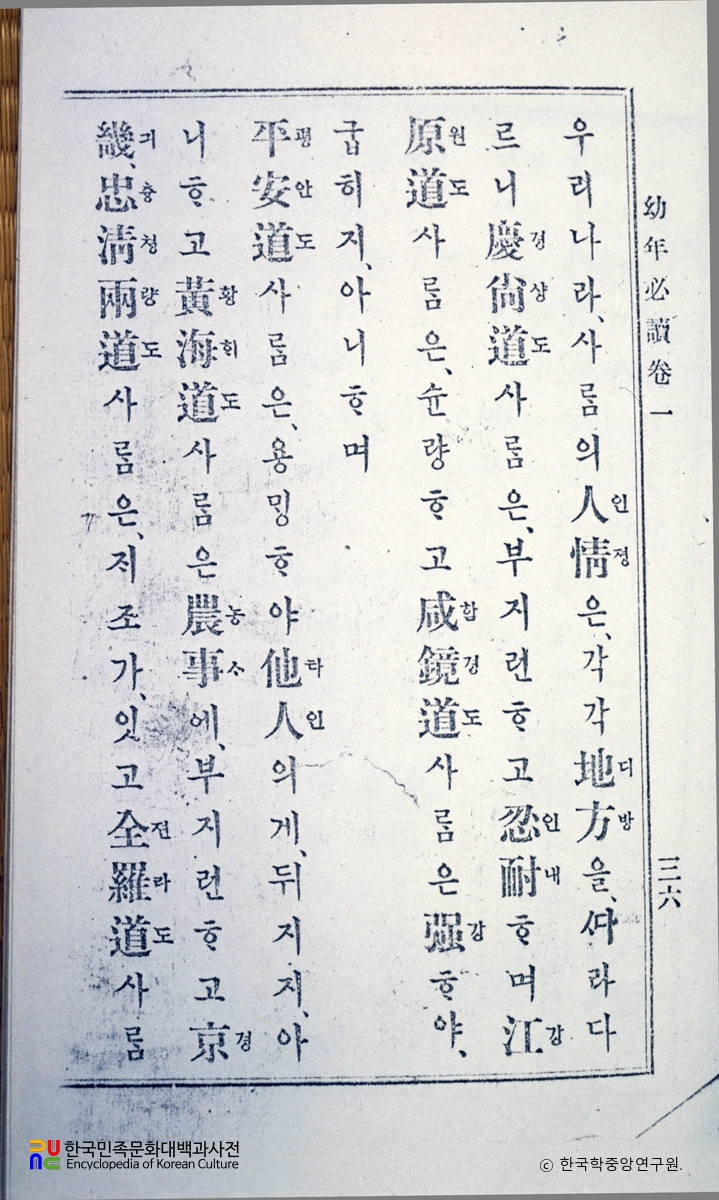 幼年必讀卷一 三六
우리나라、사ᄅᆞᆷ의人情은、각각地方을、ᄯᅡ라다
인졍 디방
르니慶尙道사ᄅᆞᆷ은、부지런ᄒᆞ고忍耐ᄒᆞ며江
경샹도 인내 강
原道사ᄅᆞᆷ은、슌량ᄒᆞ고咸鏡道사ᄅᆞᆷ은强ᄒᆞ야、
원도 함경도 강
굽히지、아니ᄒᆞ며
平安道사ᄅᆞᆷ은、용ᄆᆡᆼᄒᆞ야他人의게、뒤지지、아
평안도 타인
니ᄒᆞ고黃海道사ᄅᆞᆷ은農事에、부지런ᄒᆞ고京
황ᄒᆡ도 농ᄉᆞ 경
畿、忠淸兩道사ᄅᆞᆷ은、ᄌᆡ조가、잇고全羅道사ᄅᆞᆷ
긔츙쳥량도 젼라도
한국민족문화대백과사전
Encyclopedia of Korean Culture
ⓒ 한국학중앙연구원.